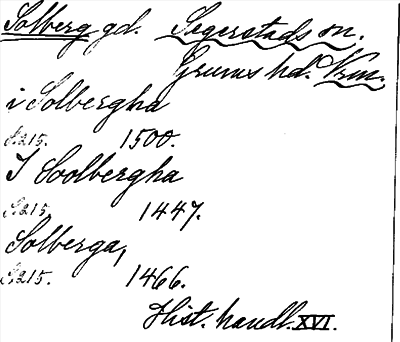 Solberg gd. Segerstads sn.
Grums hd. Vrm.
i Solbergha
S.215. 1500.
I Soolbergha
S.215. 1447.
Solberga,
S.215. 1466.
Hist. handl. XVI.